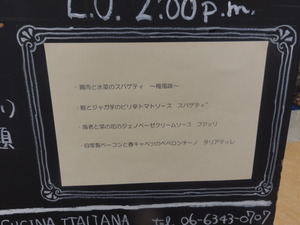 L.O. 2:00p.m.
・鶏肉と水菜のスパゲティ ～梅風味～
・鮭とジャガ芋のピリ辛トマトソース スパゲティ
・海老と菜の花のジェノベーゼクリームソース フジッリ
・自家製ベーコンと春キャベツのペペロンチーノ タリアテッレ
CUCINA ITALIANA tel. 06-6343-0707